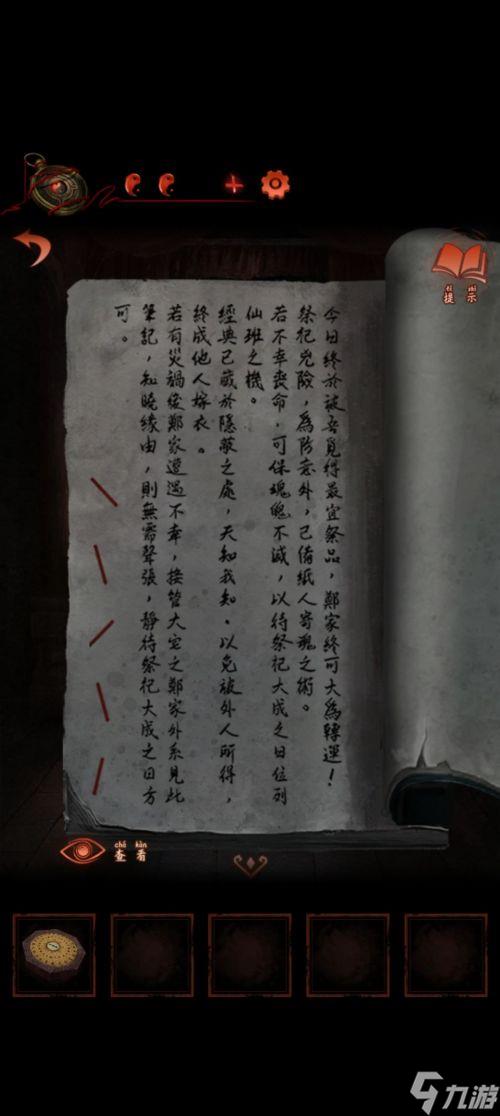 提示
今日終於被吾覓得最宜祭品，鄭家終可大為轉運！
祭祀兇險，為防意外，已備紙人寄魂之術。
若不幸喪命，可保魂魄不滅，以待祭祀大成之日位列
仙班之機。
經典已藏於隱蔽之處，天知我知，以免被外人所得，
終成他人嫁衣。
若有災禍後鄭家遭遇不幸，接管大宅之鄭家外系見此
筆記，知曉緣由，則無需聲張，靜待祭祀大成之日方
可。
chá kàn
查看
九游